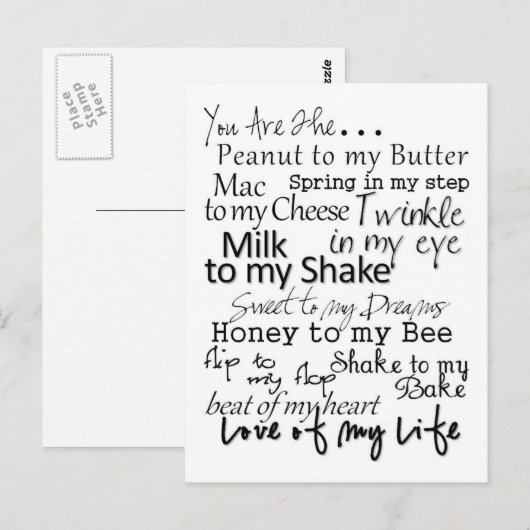 Place
Stamp
Here
zzle
You Are The...
Peanut to my Butter
Mac
Spring in my step
to my Cheese
Twinkle
in my eye
Milk
to my Shake
Sweet to my Dreams
Honey to my Bee
flip to
my flop
Shake to my
Bake
beat of my heart
Love of My Life